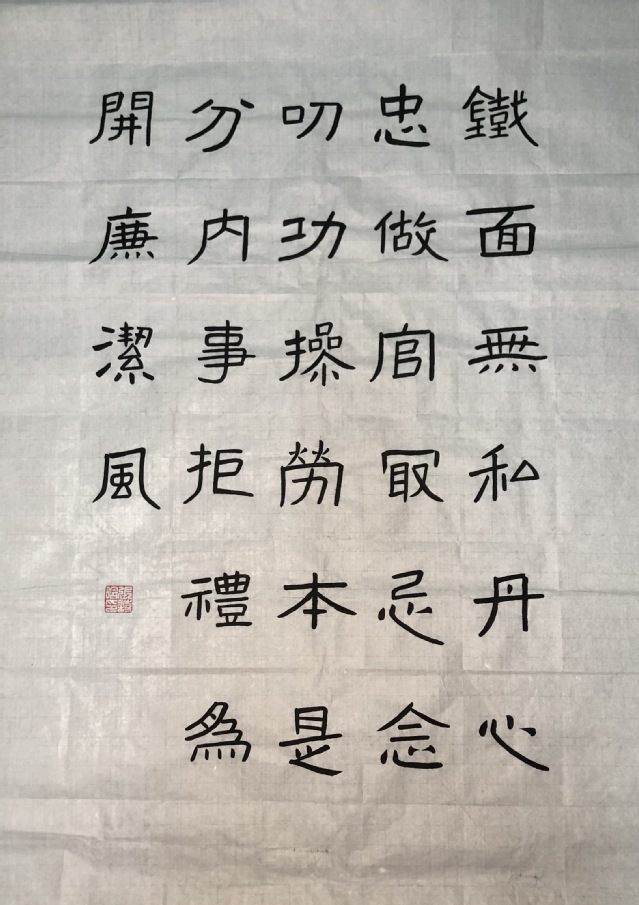 鐵面無私丹心
忠做官冣忌念
叨功操勞本是
分内事拒禮為
開廉潔風